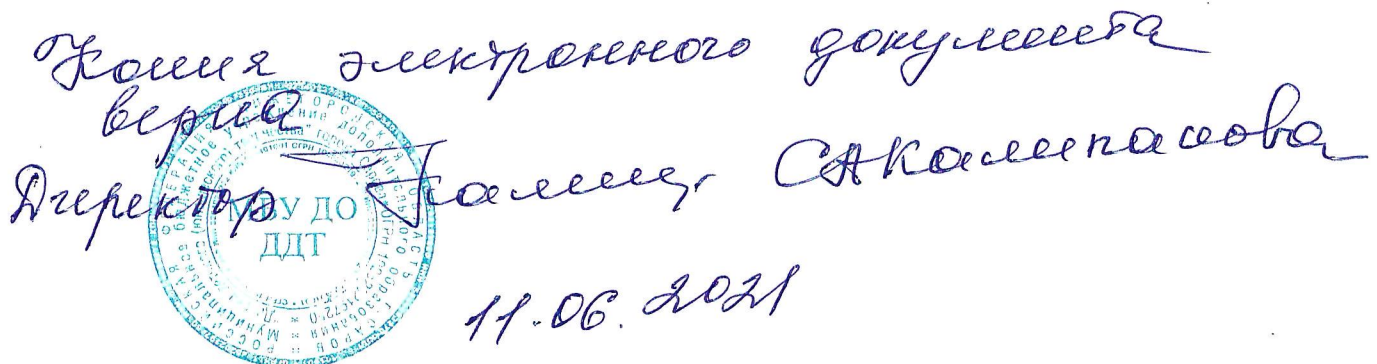 Копия электронного документа
верна
Директор С.А. Калипанова
МБУ ДО
ДДТ
11.06.2021